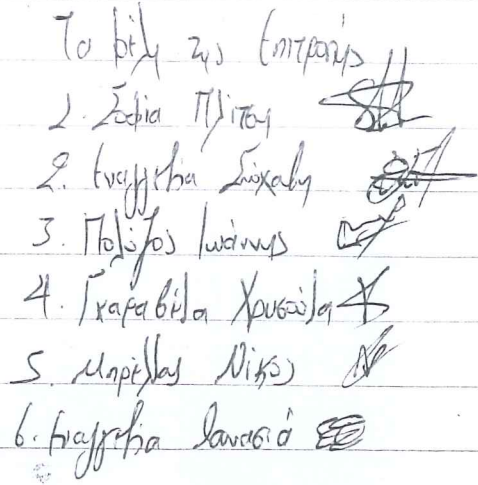 Τα μέλη της Επιτροπής
1. Σοφία Πλίτση
2. Ευαγγελία
3. Πολύζος Ιωάννης
4. Γκαραβέλα Χρυσούλα
5. Μπρέλλας Νίκος
6. Ευαγγελία Θανασιά